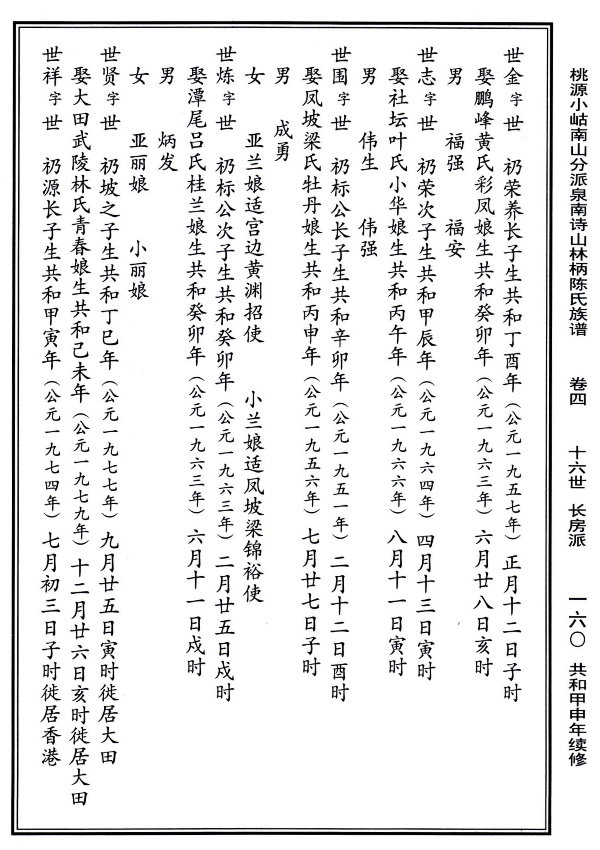 桃源小岵南山分派泉南诗山林柄陈氏族谱 卷四 十六世 长房派 一六〇 共和甲申年续修
世金字世 祀荣养长子生共和丁酉年（公元一九五七年）正月十二日子时
娶鹏峰黄氏彩凤娘生共和癸卯年（公元一九六三年）六月廿八日亥时
男 福强 福安
世志字世 祀荣次子生共和甲辰年（公元一九六四年）四月十三日寅时
娶社坛叶氏小华娘生共和丙午年（公元一九六六年）八月十一日寅时
男 伟生 伟强
世围字世 祀标公长子生共和辛卯年（公元一九五一年）二月十二日酉时
娶凤坡梁氏牡丹娘生共和丙申年（公元一九五六年）七月廿七日子时
男 成勇
女 亚兰娘适宫边黄渊招使 小兰娘适凤坡梁锦裕使
世炼字世 祀标公次子生共和癸卯年（公元一九六三年）二月廿五日戍时
娶潭尾吕氏桂兰娘生共和癸卯年（公元一九六三年）六月十一日戍时
男 炳发
女 亚丽娘 小丽娘
世贤字世 祀坡之子生共和丁巳年（公元一九七七年）九月廿五日寅时徙居大田
娶大田武陵林氏青春娘生共和己未年（公元一九七九年）十二月廿六日亥时徙居大田
世祥字世 祀源长子生共和甲寅年（公元一九七四年）七月初三日子时徙居香港